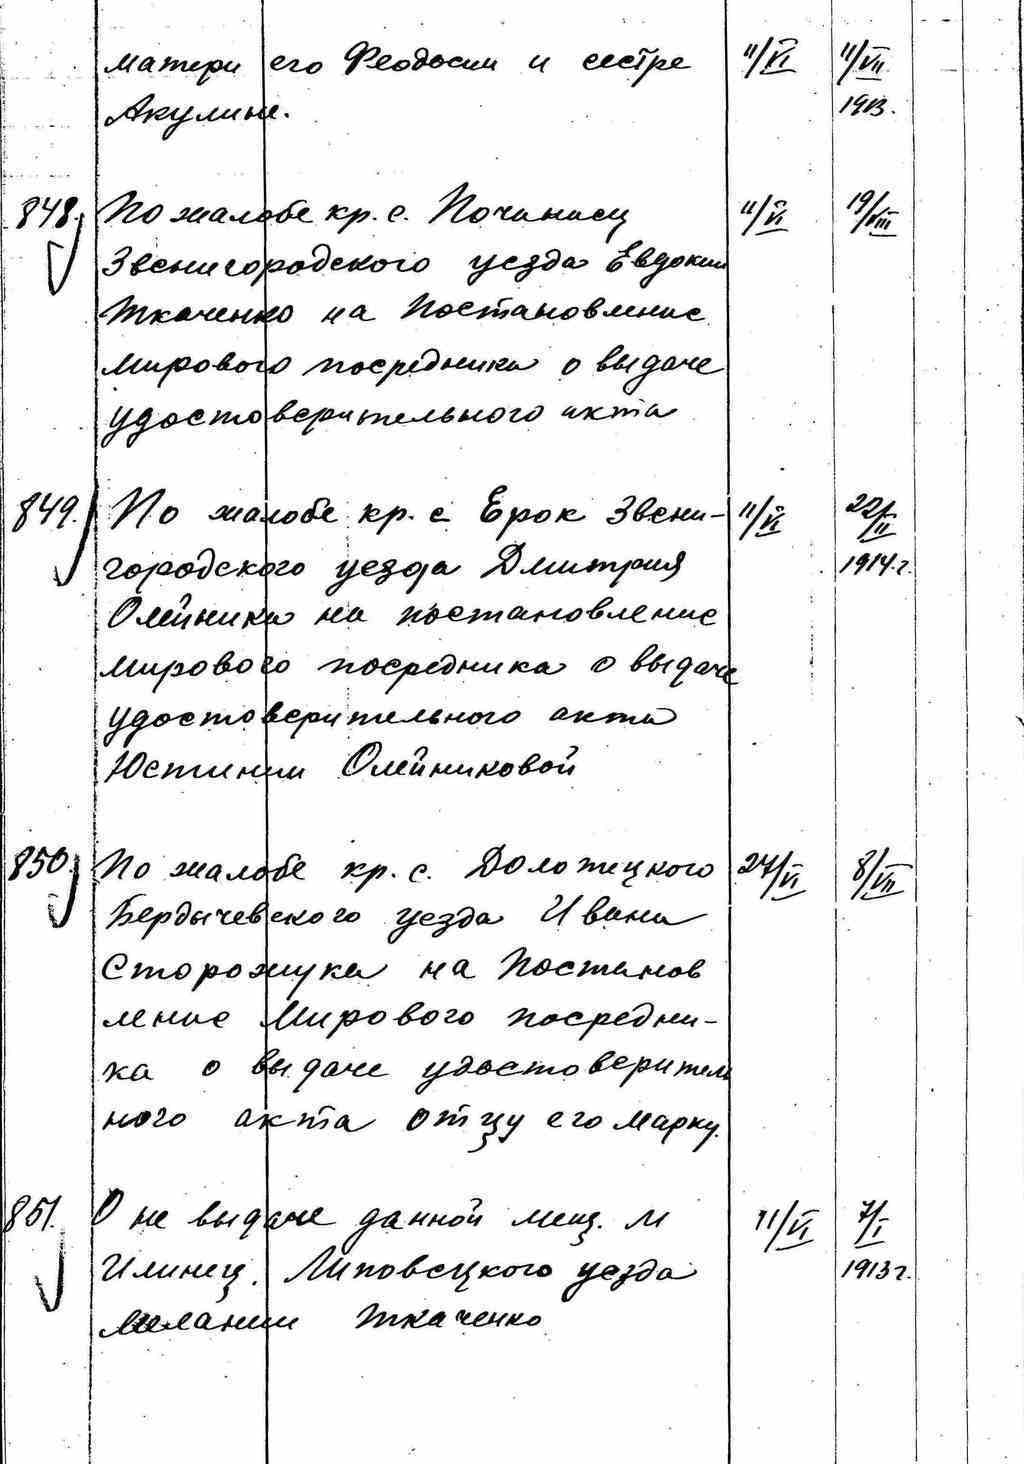 матери его Феодосии и сестре 11/VI 11/VII
Акулине. 1913.
848. По жалобе кр. с. Починиец 11/VI 19/VIII
Звенигородского уезда Евдокии
Ткаченко на Постановление
Мирового посредника о выдаче
удостоверительного акта
849. По жалобе кр. с Ерок Звени- 11/VI 22/II
городского уезда Дмитрия 1914.г.
Олейника на постановление
мирового посредника о выдаче
удостоверительного акта
Юстинии Олейниковой
850. По жалобе кр. с. Долотецкого 27/VI 8/VII
Бердычевского уезда Ивана
Сторожука на Постанов
ление Мирового посредни-
ка о выдаче удостоверитель
ного акта отцу его Марку.
851. О не выдаче данной мещ. м 11/VI 7/I
Илинец. Липовецкого уезда 1913 г.
Мелании Ткаченко